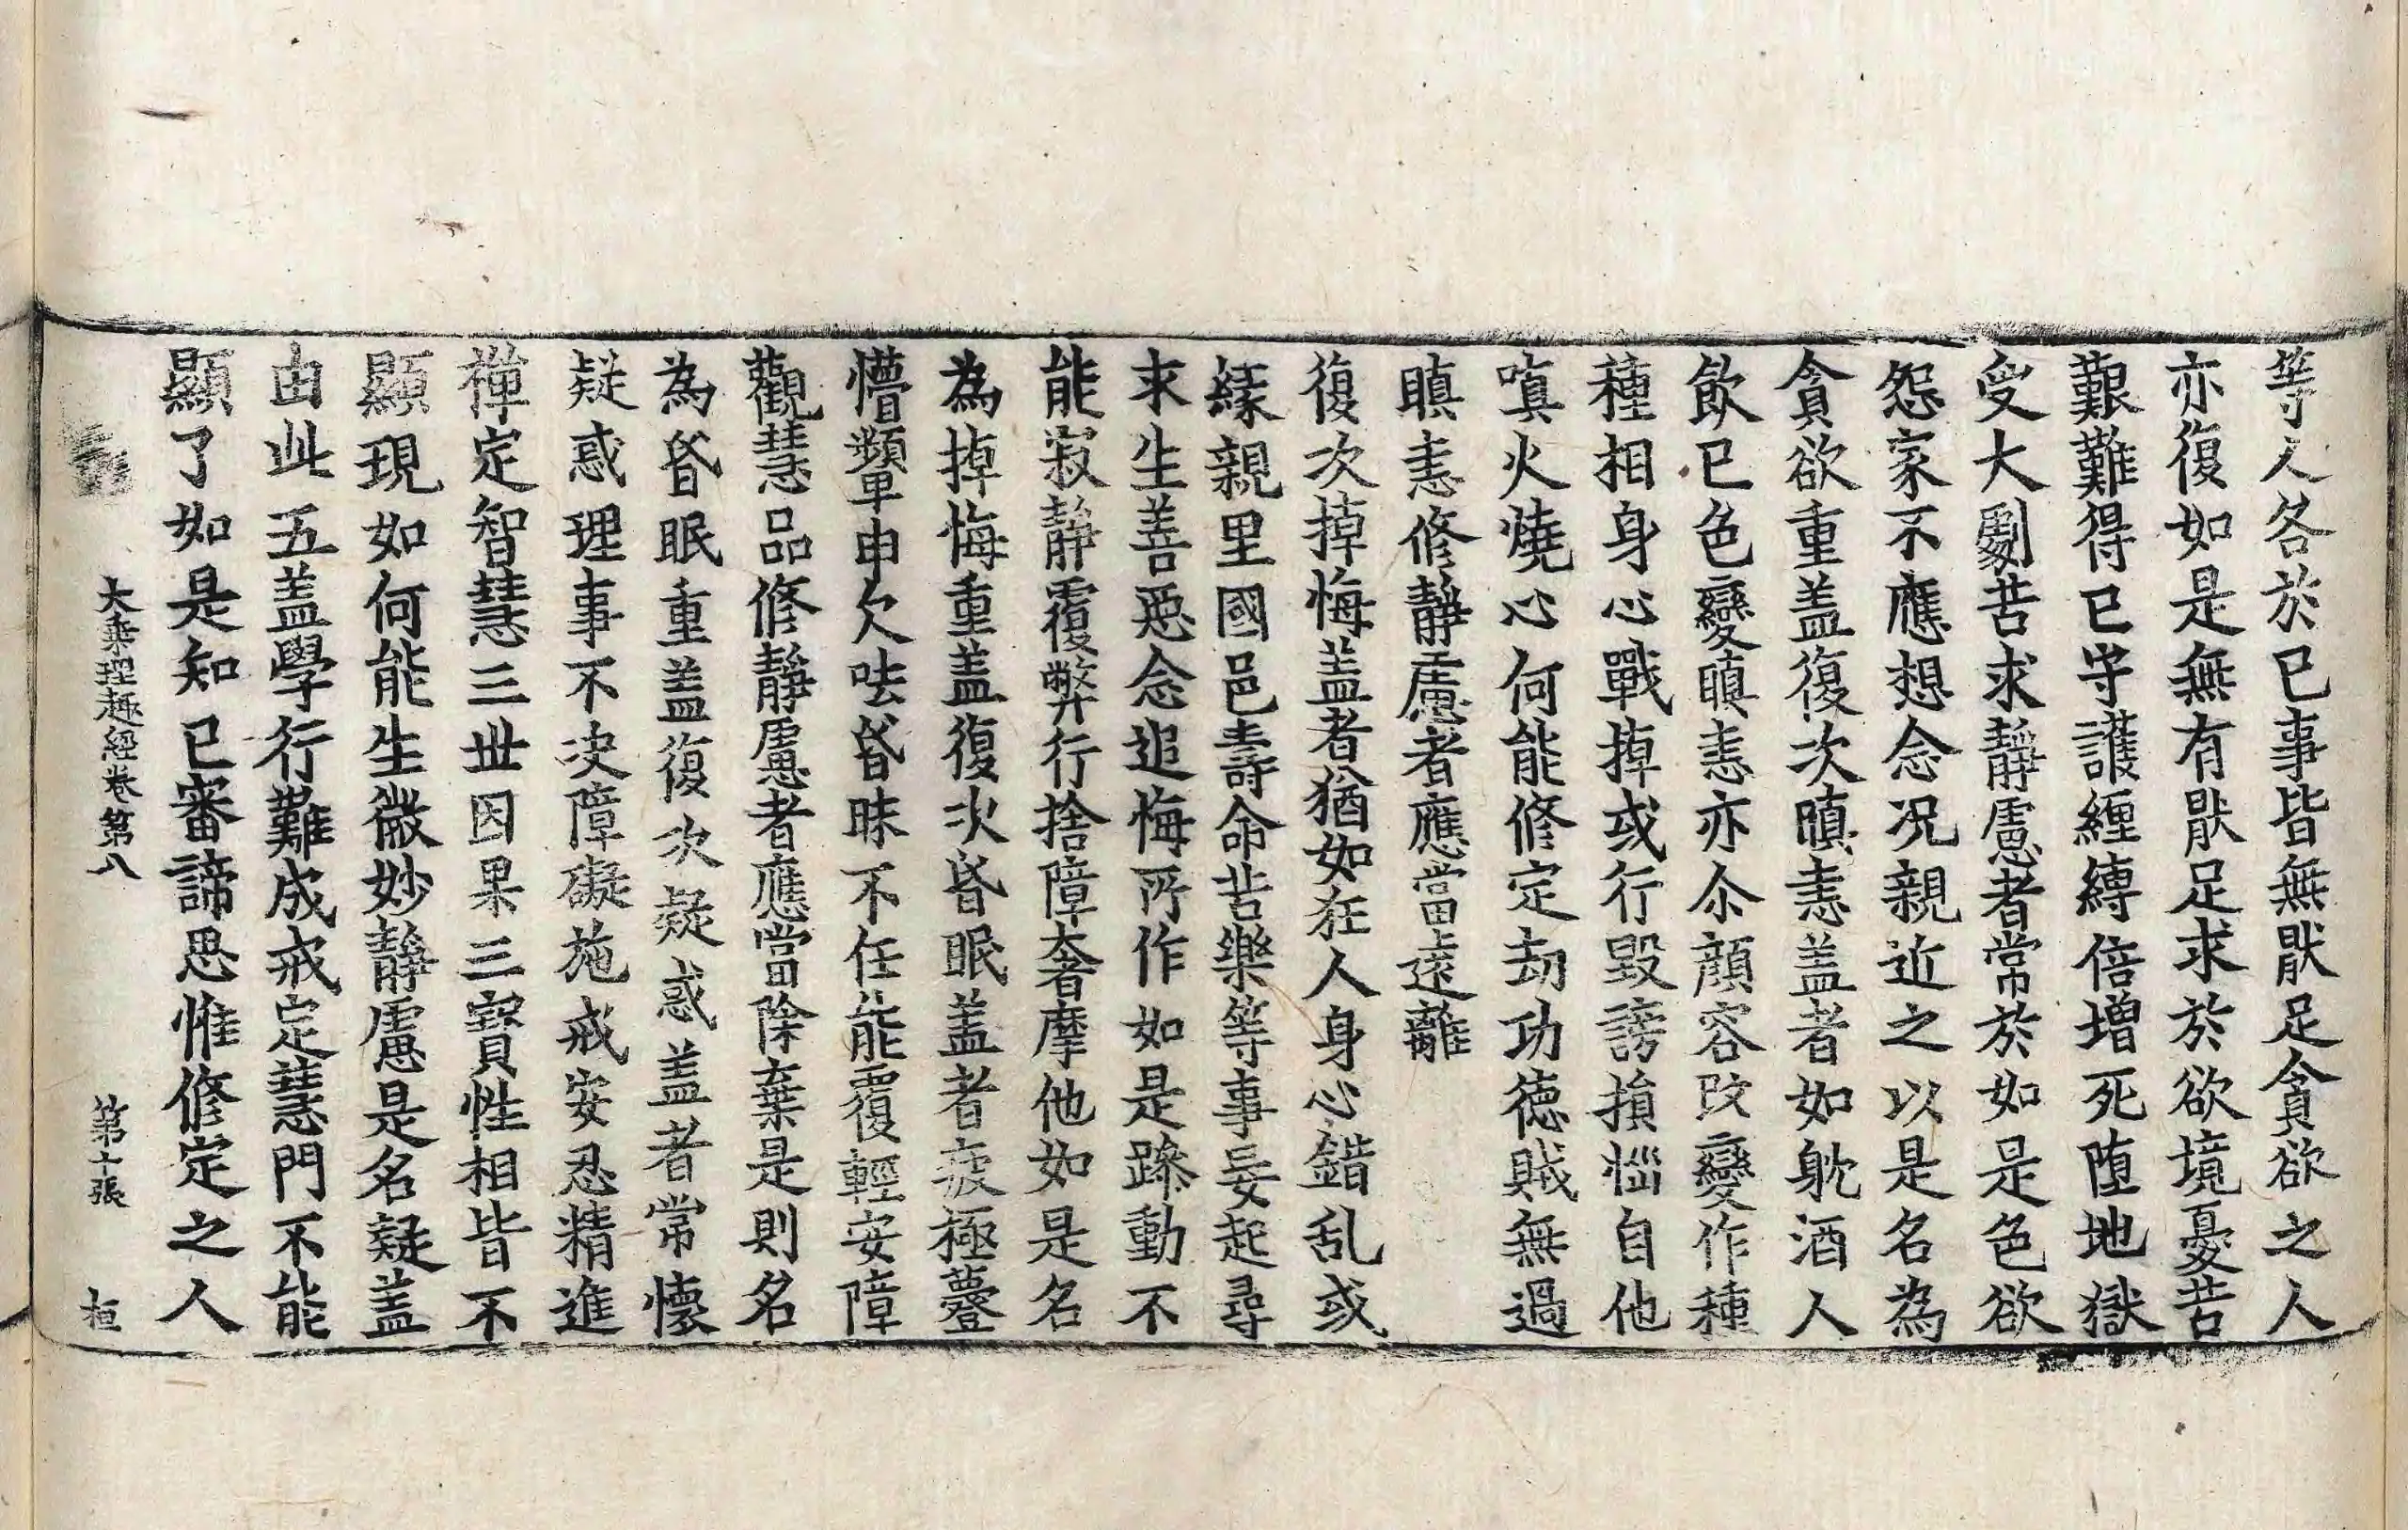 等人各於已事皆無猒足貪欲之人
亦復如是無有猒足求於欲境憂苦
艱難得已守護纏縛倍增死墮地獄
受大劇苦求靜慮者常於如是色欲
怨家不應想念况親近之以是名為
貪欲重盖復次瞋恚盖者如躭酒人
飲已色變瞋恚亦尒顔容改變作種
種相身心戰掉或行毀謗損惱自他
嗔火燒心何能修定劫功德賊無過
瞋恚修靜慮者應當遠離
復次掉悔盖者猶如狂人身心錯乱或
緣親里國邑壽命苦樂等事妄起尋
求生善惡念追悔所作如是躁動不
能寂靜覆弊行捨障奢摩他如是名
為掉悔重盖復次昏眠盖者疲極薹
懵頻申欠呿昏昧不任能覆輕安障
觀慧品修靜慮者應當除棄是則名
為昏眠重盖復次疑惑盖者常懷
疑惑理事不決障礙施戒安忍精進
禪定智慧三世因果三寶性相皆不
顯現如何能生微妙靜慮是名疑盖
由此五盖學行難成戒定慧門不能
顯了如是知已審諦思惟修定之人
大乘理趣經卷第八 第十張 桓